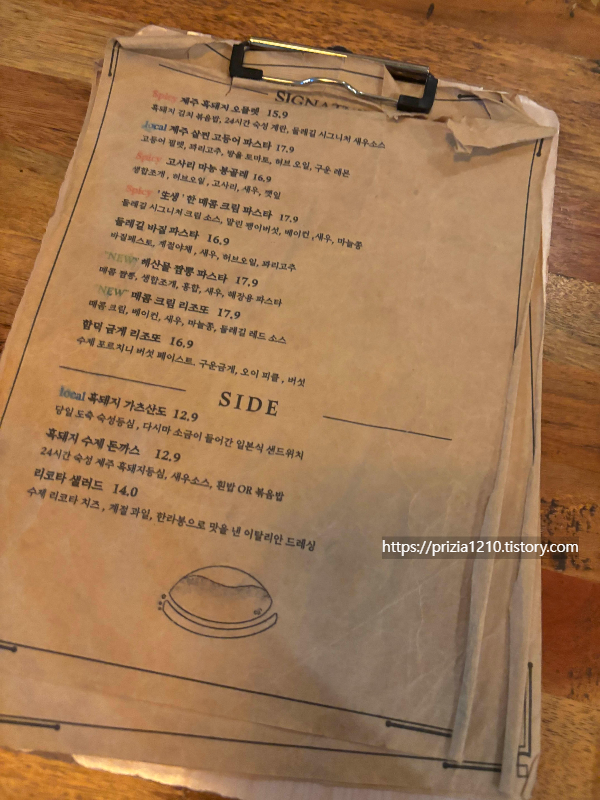 SIGNAT
Spicy 제주 흑돼지 오믈렛 15.9
흑돼지 김치 볶음밥, 24시간 숙성 계란, 들레길 시그니처 새우소스
local 제주 살찐 고등어 파스타 17.9
고등어 필렛, 꽈리고추, 방울 토마토, 허브 오일, 구운 레몬
Spicy 고사리 마늘 봉골레 16.9
생합조개, 허브오일, 고사리, 새우, 깻잎
Spicy '生생' 한 매콤 크림 파스타 17.9
들레길 시그니처 크림 소스, 말린 팽이버섯, 베이컨, 새우, 마늘쫑
들레길 바질 파스타 16.9
바질페스토, 계절야채, 새우, 허브오일, 꽈리고추
"NEW" 해산물 짬뽕 파스타 17.9
매콤 짬뽕, 생합조개, 홍합, 새우, 해장용 파스타
"NEW" 매콤 크림 리조또 17.9
매콤 크림, 베이컨, 새우, 마늘쫑, 들레길 레드 소스
함덕 금게 리조또 16.9
수제 포르치니 버섯 페이스트. 구운금게, 오이 피클, 버섯
SIDE
local 흑돼지 가츠산도 12.9
당일 도축 숙성등심, 다시마 소금이 들어간 일본식 샌드위치
흑돼지 수제 돈까스 12.9
24시간 숙성 제주 흑돼지등심, 새우소스, 흰밥 OR 볶음밥
리코타 샐러드 14.0
수제 리코타 치즈, 계절 과일, 한라봉으로 맛을 낸 이탈리안 드레싱
https://prizia1210.tistory.com